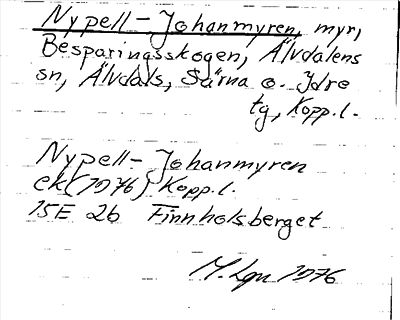 Nypell-Johanmyren, myr,
Besparingsskogen, Älvdalens
sn, Älvdals, Särna o. Idre
tg, Kopp.l.
Nypell-Johanmyren
ek(1976) Kopp.l.
15E 2b Finnholsberget
M. Lgn 1976